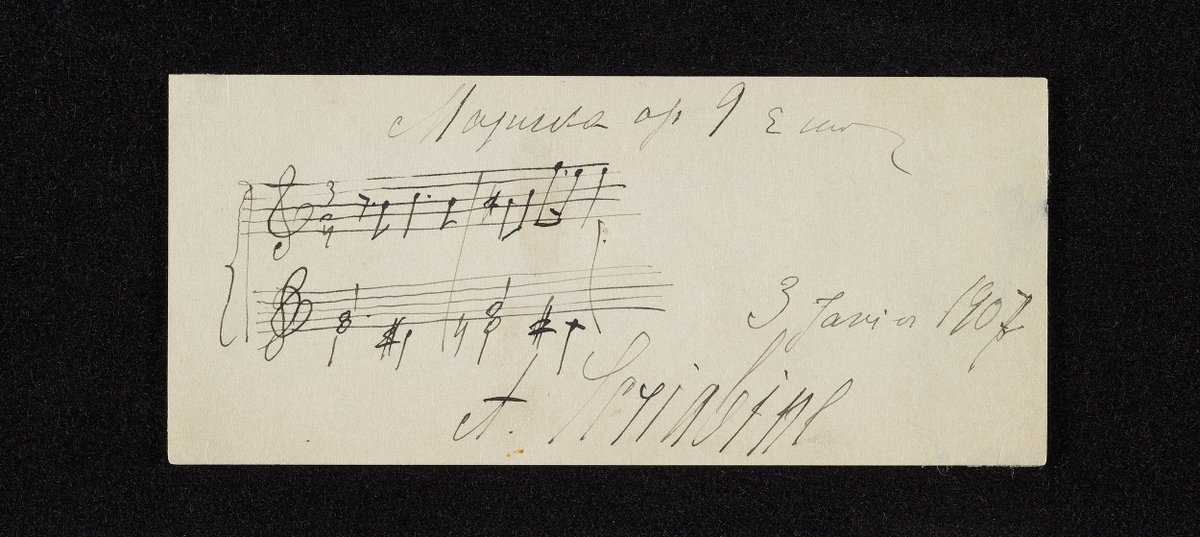 Mazurka op 9 E
3
4
3 Janvier 1907
A. Scriabine